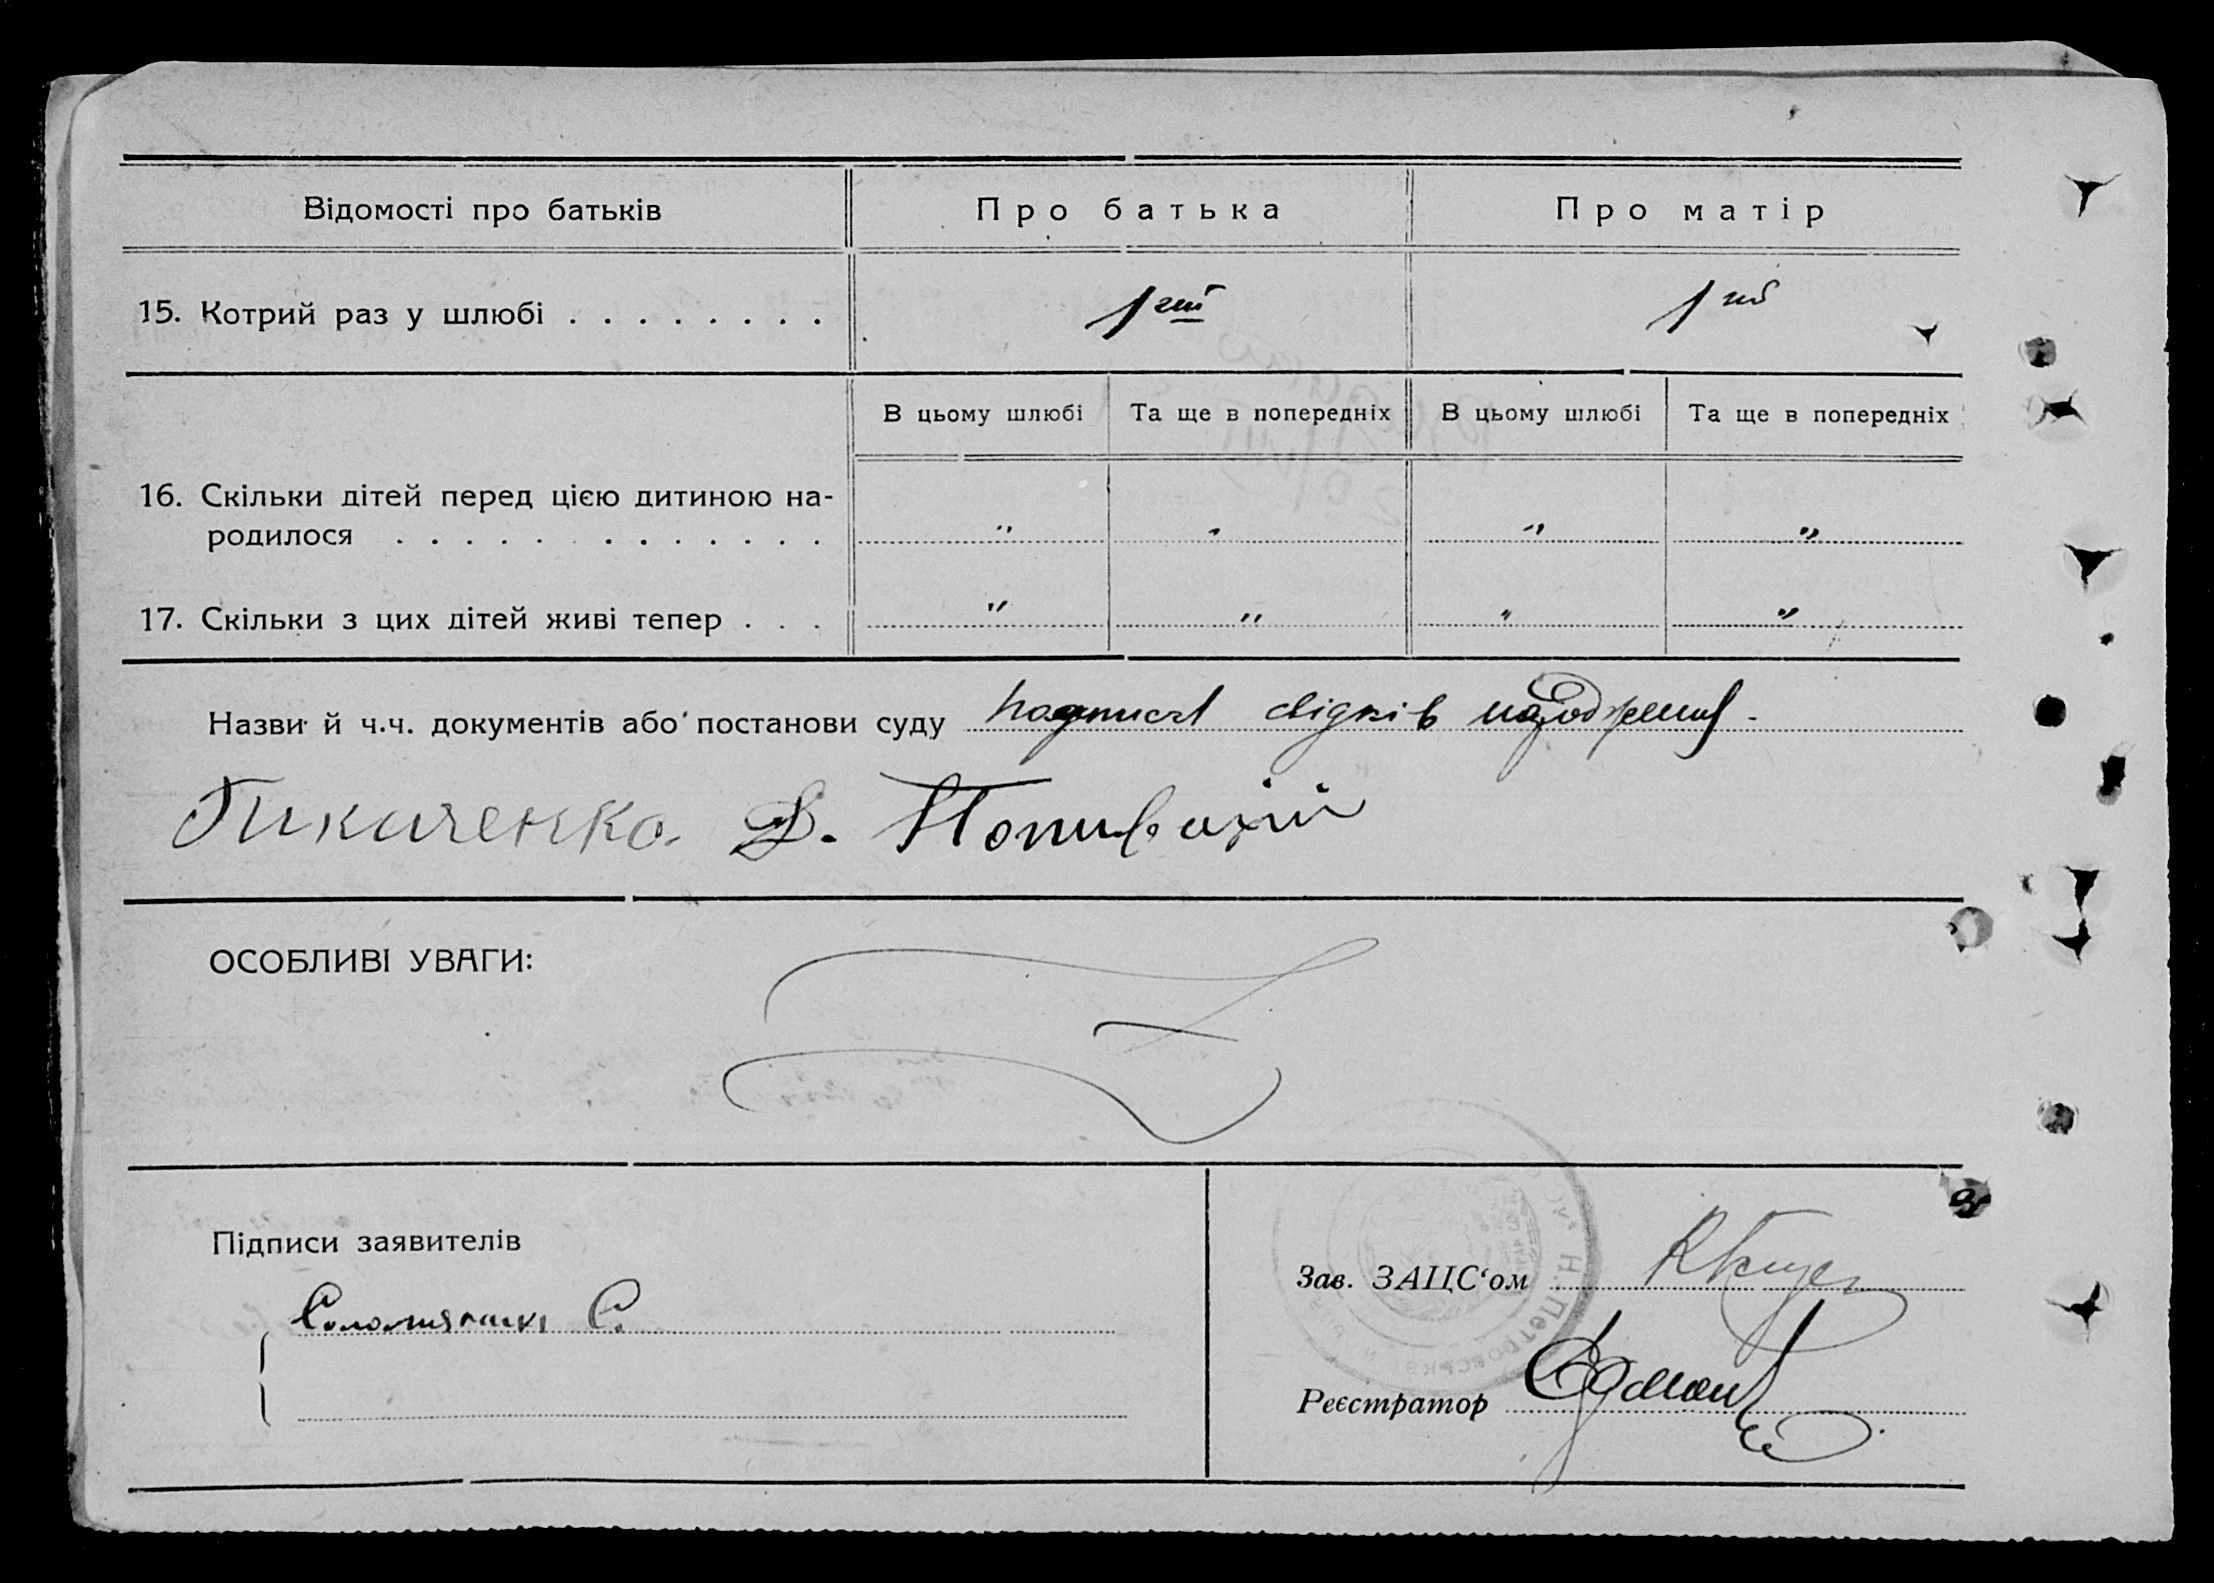 Відомості про батьків Про батька Про матір
15. Котрий раз у шлюбі . . . . . . . . 1ший 1ий
В цьому шлюбі Та ще в попередніх В цьому шлюбі Та ще в попередніх
16. Скільки дітей перед цією дитиною на-
родилося . . . . . . . . . . . . . " " " "
17. Скільки з цих дітей живі тепер . . . " " " "
Назви й ч.ч. документів або постанови суду свідків
Ткаченко Д.
ОСОБЛИВІ УВАГИ:
Підписи заявителів
С.
Зав. ЗАЦС'ом
Реєстратор